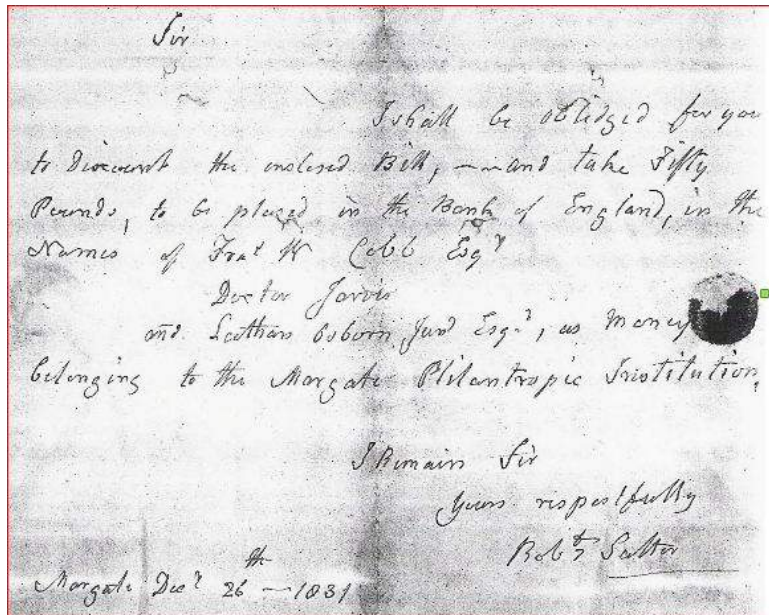 Sir
I shall be obliged for you
to Discount the enclosed Bill, —and take Fifty
Pounds, to be placed in the Bank of England, in the
Names of Fras W Cobb Esqr
Doctor Jarvis
and Osborn Junr Esqr, as Money
belonging to the Margate Philantropic Institution,
I Remain Sir
Yours respectfully
Robt Salter
Margate Decr 26th —1831